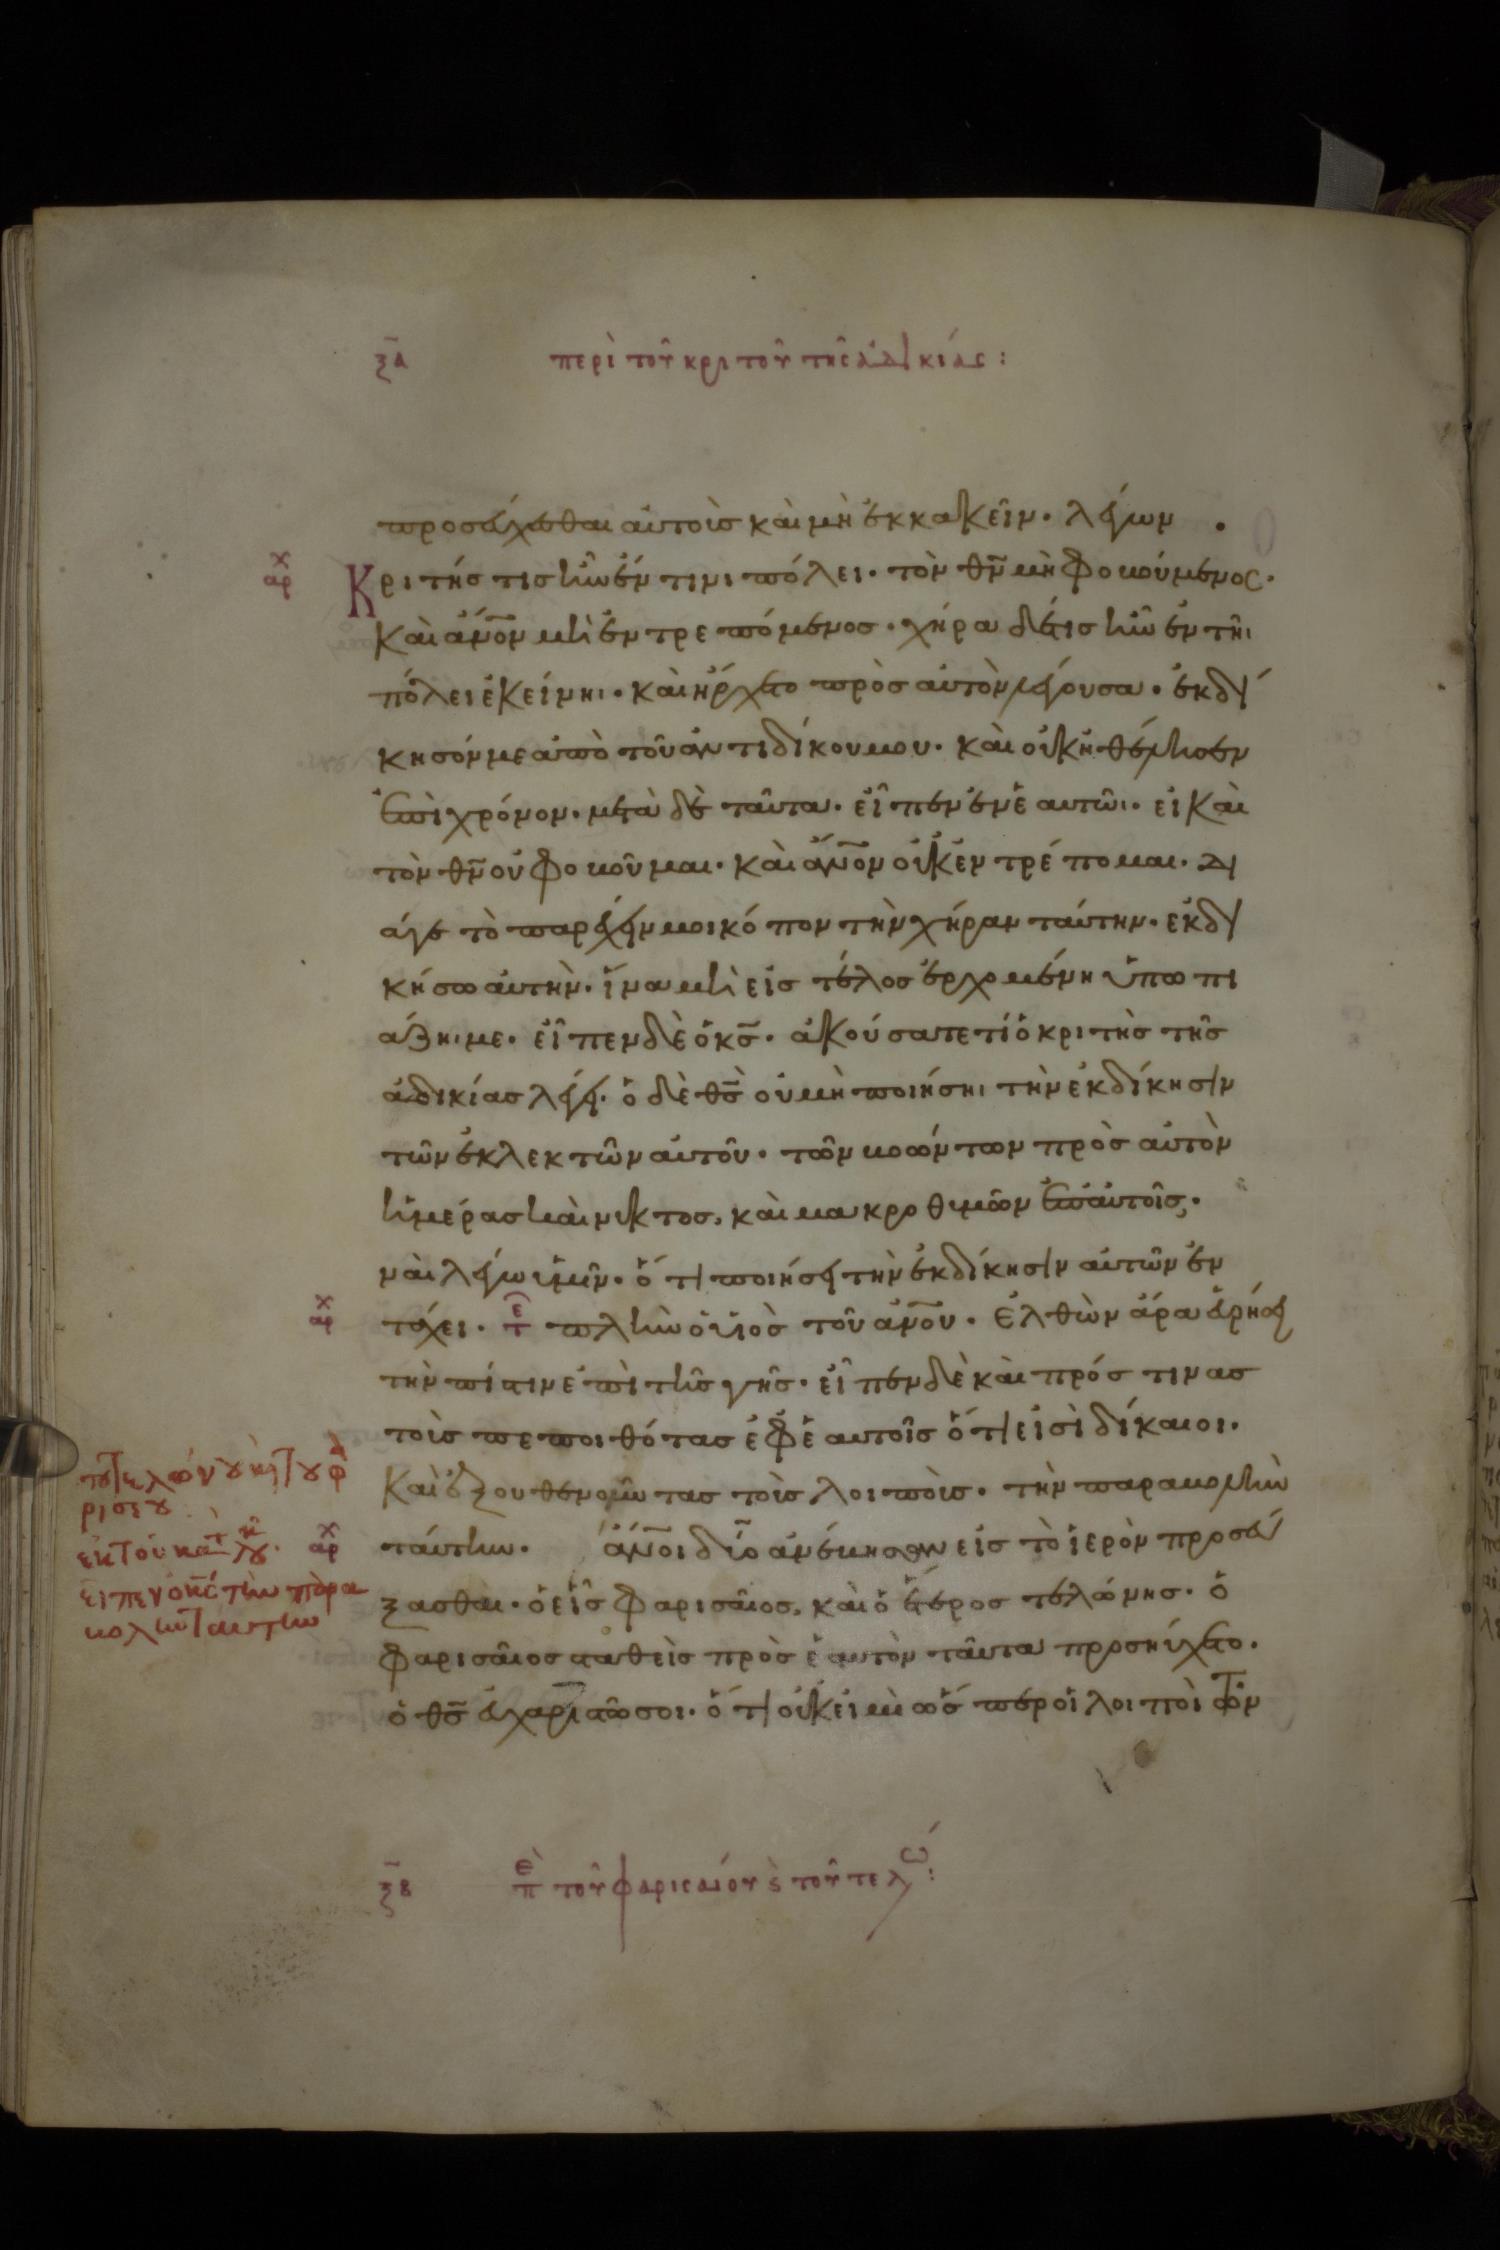 ξα περὶ τοῦ κριτοῦ τῆς ἀδικίας :
προσεύχεσθαι αὐτοὺς καὶ μὴ ἐκκακεῖν · λέγων ·
αρχ Κριτής τις ἦν ἔν τινι πόλει · τὸν θν μὴ φοβούμενος ·
καὶ ἄνον μὴ ἐντρεπόμενος · χήρα δέ τις ἦν ἐν τῆι
πόλει ἐκείνηι · καὶ ἤρχετο πρὸς αὐτὸν λέγουσα · ἐκδί
κησόν με ἀπὸ τοῦ ἀντιδίκου μου · καὶ οὐκ ἠθέλησεν
ἐπὶ χρόνον · μετὰ δὲ ταῦτα · εἶπεν ἐν ἑαυτῶι · εἰ καὶ
τὸν θν οὐ φοβοῦμαι · καὶ ἄνον οὐκ ἐντρέπομαι · δι
άγε τὸ παρέχειν μοι κόπον τὴν χήραν ταύτην · ἐκδι
κήσω αὐτὴν · ἵνα μὴ εἰς τέλος ἐρχομένη ὑπωπι
άζηι με · εἶπεν δὲ ὁ κς · ἀκούσατε τί ὁ κριτὴς τῆς
ἀδικίας λέγει · ὁ δὲ θς οὐ μὴ ποιήσηι τὴν ἐκδίκησιν
τῶν ἐκλεκτῶν αὐτοῦ · τῶν βοώντων πρὸς αὐτὸν
ἡμέρας καὶ νυκτος, καὶ μακροθυμῶν ἐπ αὐτοῖς ·
ναὶ λέγω ὑμῖν · ὅτι ποιήσει τὴν ἐκδίκησιν αὐτῶν ἐν
αρχ τάχει · τε πλὴν ὁ υἱὸς τοῦ ἀνου · ἐλθὼν ἆρα εὑρήσει
τὴν πίστιν ἐπὶ τῆς γῆς · εἶπεν δὲ καὶ πρός τινας
τοὺς πεποιθότας ἐφ ἑαυτοῖς ὅτι εἰσὶ δίκαιοι ·
καὶ ἐξουθενοῦντας τοὺς λοιποὺς · τὴν παραβολὴν
ταύτην · ἄνοι δύο ἀνέβησαν εἰς τὸ ἱερὸν προσεύ
ξασθαι · ὁ εἷς φαρισαῖος, καὶ ὁ ἕτερος τελώνης · ὁ
φαρισαῖος σταθεὶς πρὸς ἑαυτὸν ταῦτα προσηύχετο ·
ὁ θς εὐχαριστῶ σοι · ὅτι οὐκ εἰμὶ ὥσπερ οἱ λοιποὶ τῶν
τοῦ τελώνου κ, του φα
ρισι ου
ἐκ τοῦ κατ λου · αρχ
ειπεν ὁ κς τὴν παρα
βολὴν ταύτην
ξβ πε τοῦ φαρισαίου κ, τοῦ τελώ :